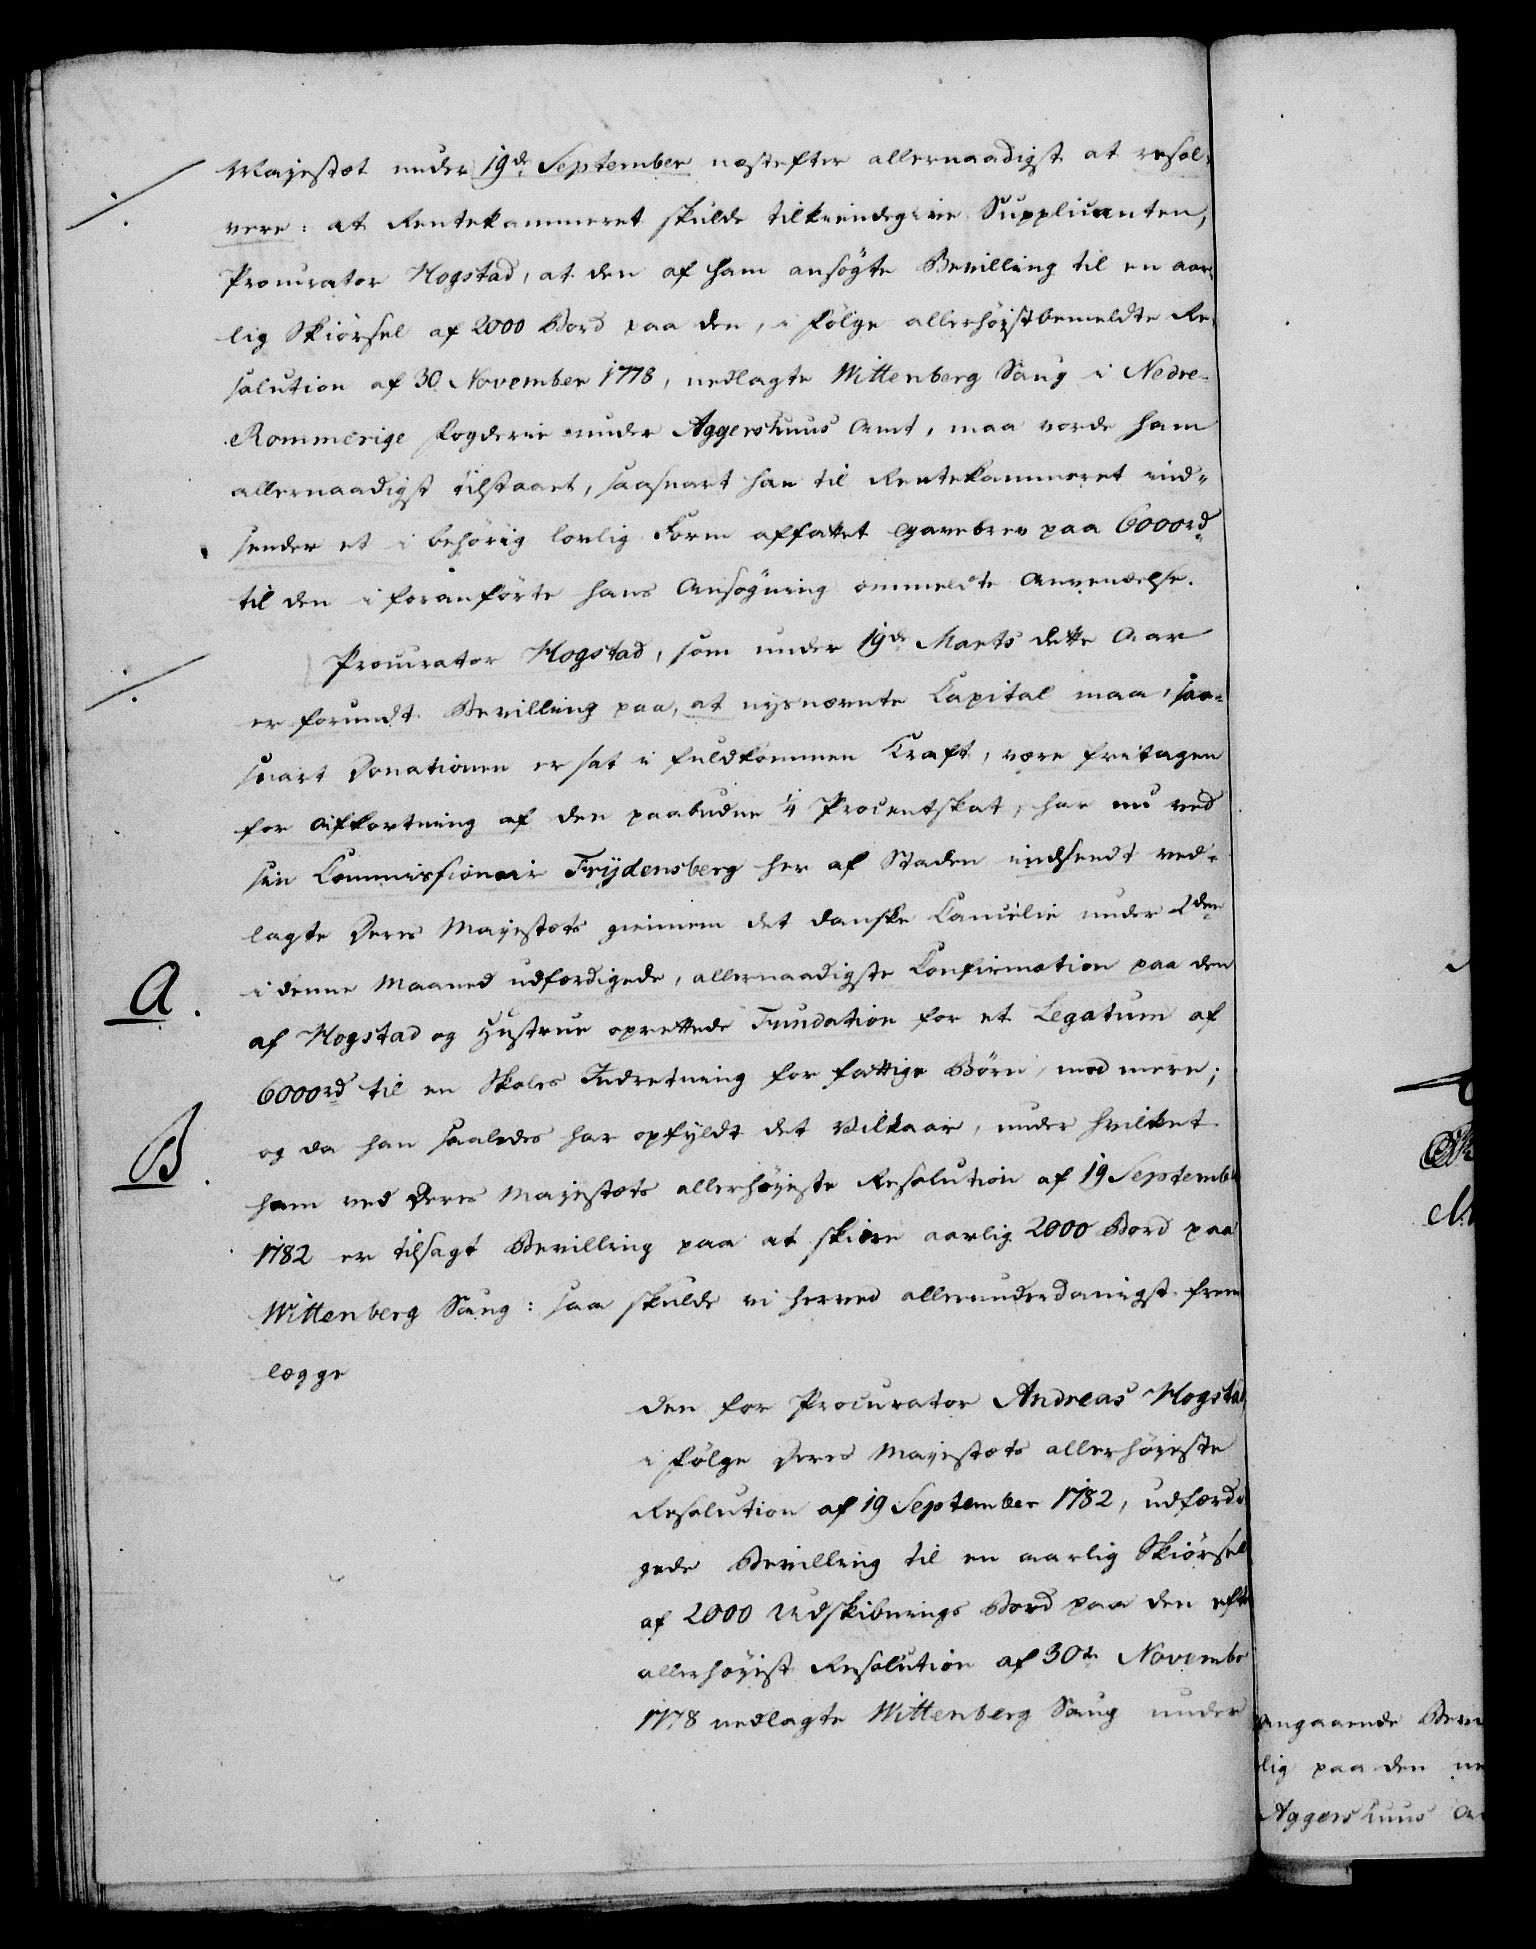 Majestæt under 19de September næstefter allernaadigst at resol-
vere: at Rentekammeret skulde tilkiendegive Supplicanten,
Procurator Mogstad, at den af ham ansøgte Bevilling til en aar-
lig Skiørsel af 2000 Bord paa den, i følge allerhøistbemeldte Re-
solution af 30 November 1778, nedlagte Wittenberg Saug i Nedre-
Rommerige Fogderie under Aggershuus Amt, maa vorde ham
allernaadigst tilstaaet, saasnart han til Rentekammeret ind-
sender et i behørig lovlig Form affattet Gavebrev paa 6000rd
til den i foranførte hans Ansøgning ommeldte Anvendelse.
Procurator Mogstad, som under 19de Marts dette Aar
er forundt Bevilling paa, at nysnævnte Capital maa, saa-
snart Donationen er sat i fuldkommen Kraft, være fritagen
for Afkortning af den paabudne 1/4 Procentskat, har nu ved
sin Commissionair Frydensberg her af Staden indsendt ved-
lagte Deres Majestæts giennem det danske Cancelie under 2den
i denne Maaned udfærdigede, allernaadigste Confirmation paa den
A.
af Mogstad og Hustrue oprettede Fundation for et Legatum af
6000rd til en Skoles Indretning for fattige Børn, med mere;
og da han saaledes har opfyldt det Vilkaar, under hvilket
B.
ham ved Deres Majestæts allerhøjeste Resolution af 19 September
1782 er tilsagt Bevilling paa at skiære aarlig 2000 Bord paa
Wittenberg Saug: saa skulde vi herved allerunderdanigst frem
lægge
den for Procurator Andreas Mogstad,
i følge Deres Majestæts allerhøjeste
Resolution af 19 September 1782, udfærdi
gede Bevilling til en aarlig Skiørsel
af 2000 Udskibnings Bord paa den efter
allerhøjest Resolution af 30te November
1778 nedlagte Wittenberg Saug under
angaaende
lig paa den
Aggershuus